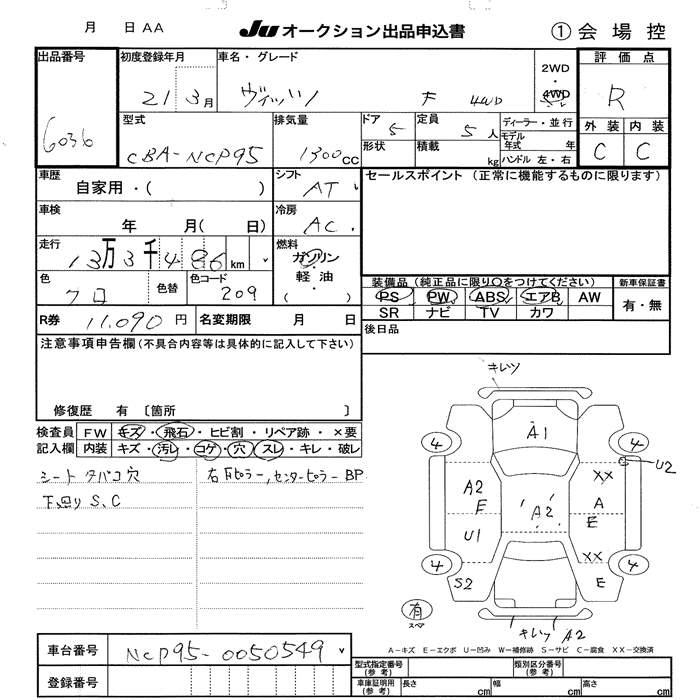 月 日 AA JU オークション出品申込書 ① 会場控
出品番号 初度登録年月 車名・グレード 2WD・4WD 評価点
6036 21 3月 ヴィッツ F 4WD R
型式 排気量 ドア 定員 ディーラー・並行 外装 内装
CBA-NCP95 1300cc 5 5人 モデル年式 年 C C
形状 積載 kg ハンドル 左・右
車歴 自家用・( ) シフト AT セールスポイント (正常に機能するものに限ります)
車検 年 月( 日) 冷房 AC
走行 13万3千486 km 燃料 ガソリン・軽油・( )
色 クロ 色替 色コード 209
装備品 (純正品に限り○をつけてください) 新車保証書
PS PW ABS エアB AW 有・無
SR ナビ TV カワ
R券 11,090円 名変期限 月 日 後日品
注意事項申告欄 (不具合内容等は具体的に記入して下さい)
修復歴 有 〔箇所 〕
検査員記入欄 FW キズ・飛石・ヒビ割・リペア跡・×要
内装 キズ・汚レ・コゲ・穴・スレ・キレ・破レ
シート タバコ穴
下廻り S、C
右Fピラー,センターピラー BP
キレツ
A1
4 4
U2
XX
A2 F A2 A E
U1 XX
4 4
S2 E
有 スペア
キレツ A2
A-キズ E-エクボ U-凹み W-補修跡 S-サビ C-腐食 XX-交換済
車台番号 NCP95-0050549
登録番号
型式指定番号(参考) 類別区分番号(参考)
車庫証明用(参考) 長さ cm 幅 cm 高さ cm